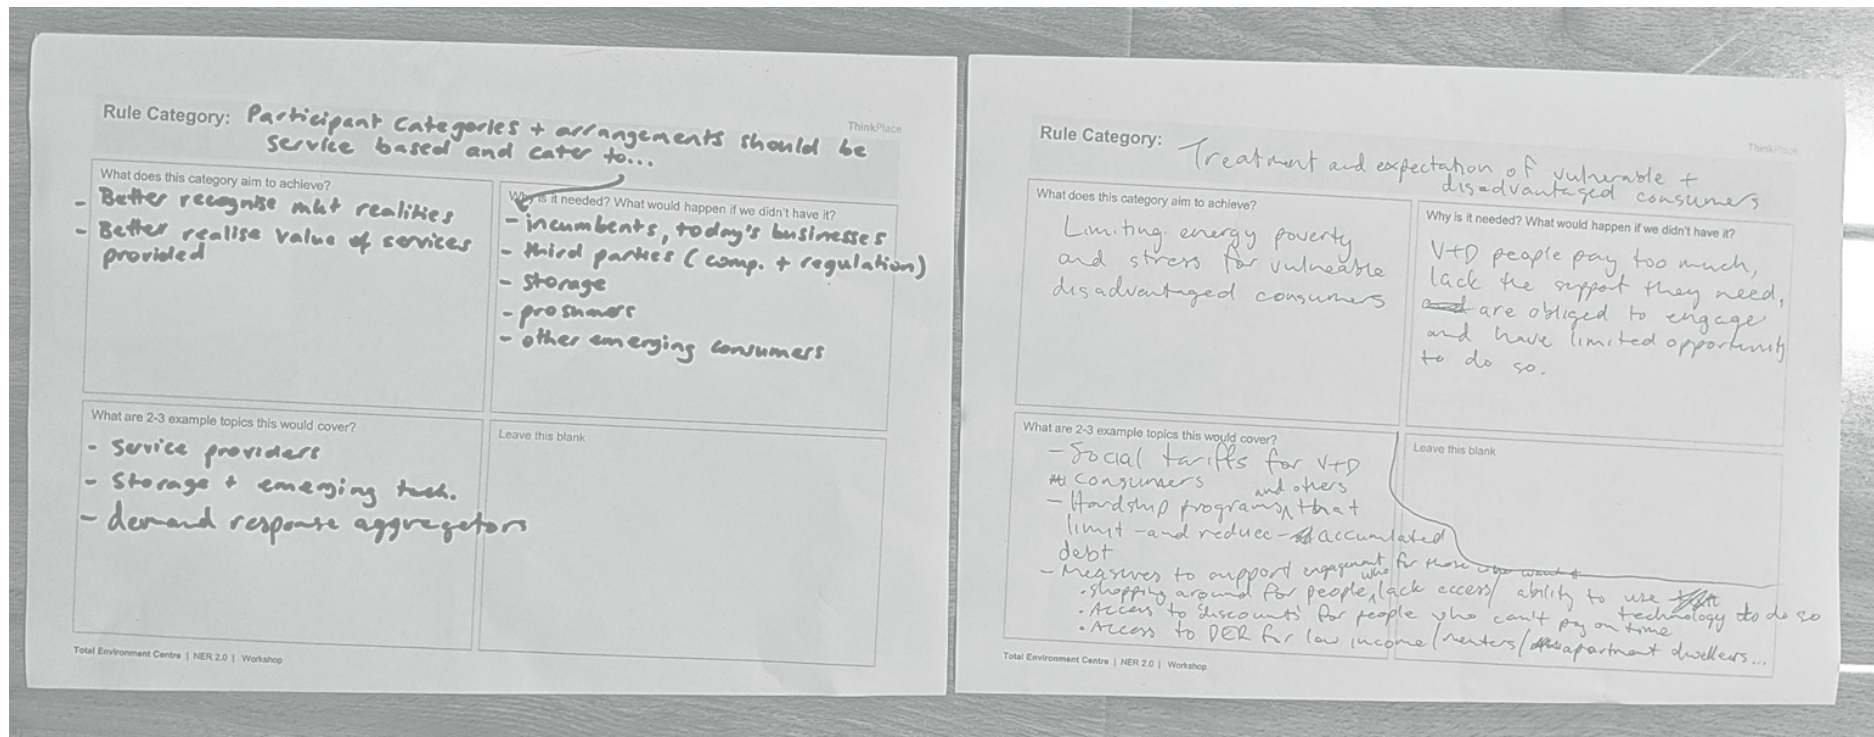 Rule Category: Participant categories + arrangements should be
service based and cater to...
ThinkPlace
What does this category aim to achieve?
- Better recognise mkt realities
- Better realise value of services
provided
Why is it needed? What would happen if we didn't have it?
- incumbents, today's businesses
- third parties (comp. + regulation)
- storage
- prosumers
- other emerging consumers
What are 2-3 example topics this would cover?
- Service providers
- Storage + emerging tech.
- demand response aggregators
Leave this blank
Total Environment Centre | NER 2.0 | Workshop
Rule Category: Treatment and expectation of vulnerable +
disadvantaged consumers
ThinkPlace
What does this category aim to achieve?
Limiting energy poverty
and stress for vulneable
disadvantaged consumers
Why is it needed? What would happen if we didn't have it?
V+D people pay too much,
lack the support they need,
are obliged to engage
and have limited opportunity
to do so.
What are 2-3 example topics this would cover?
- Social tariffs for V+D
consumers
- Hardship programs and others that
limit -and reduce- accumulated
debt
- Measures to support engagement for those who want it
• shopping around for people who lack access/ability to use technology to do so
• Access to 'discounts' for people who can't pay on time
• Access to DER for low income/renters/apartment dwellers...
Leave this blank
Total Environment Centre | NER 2.0 | Workshop